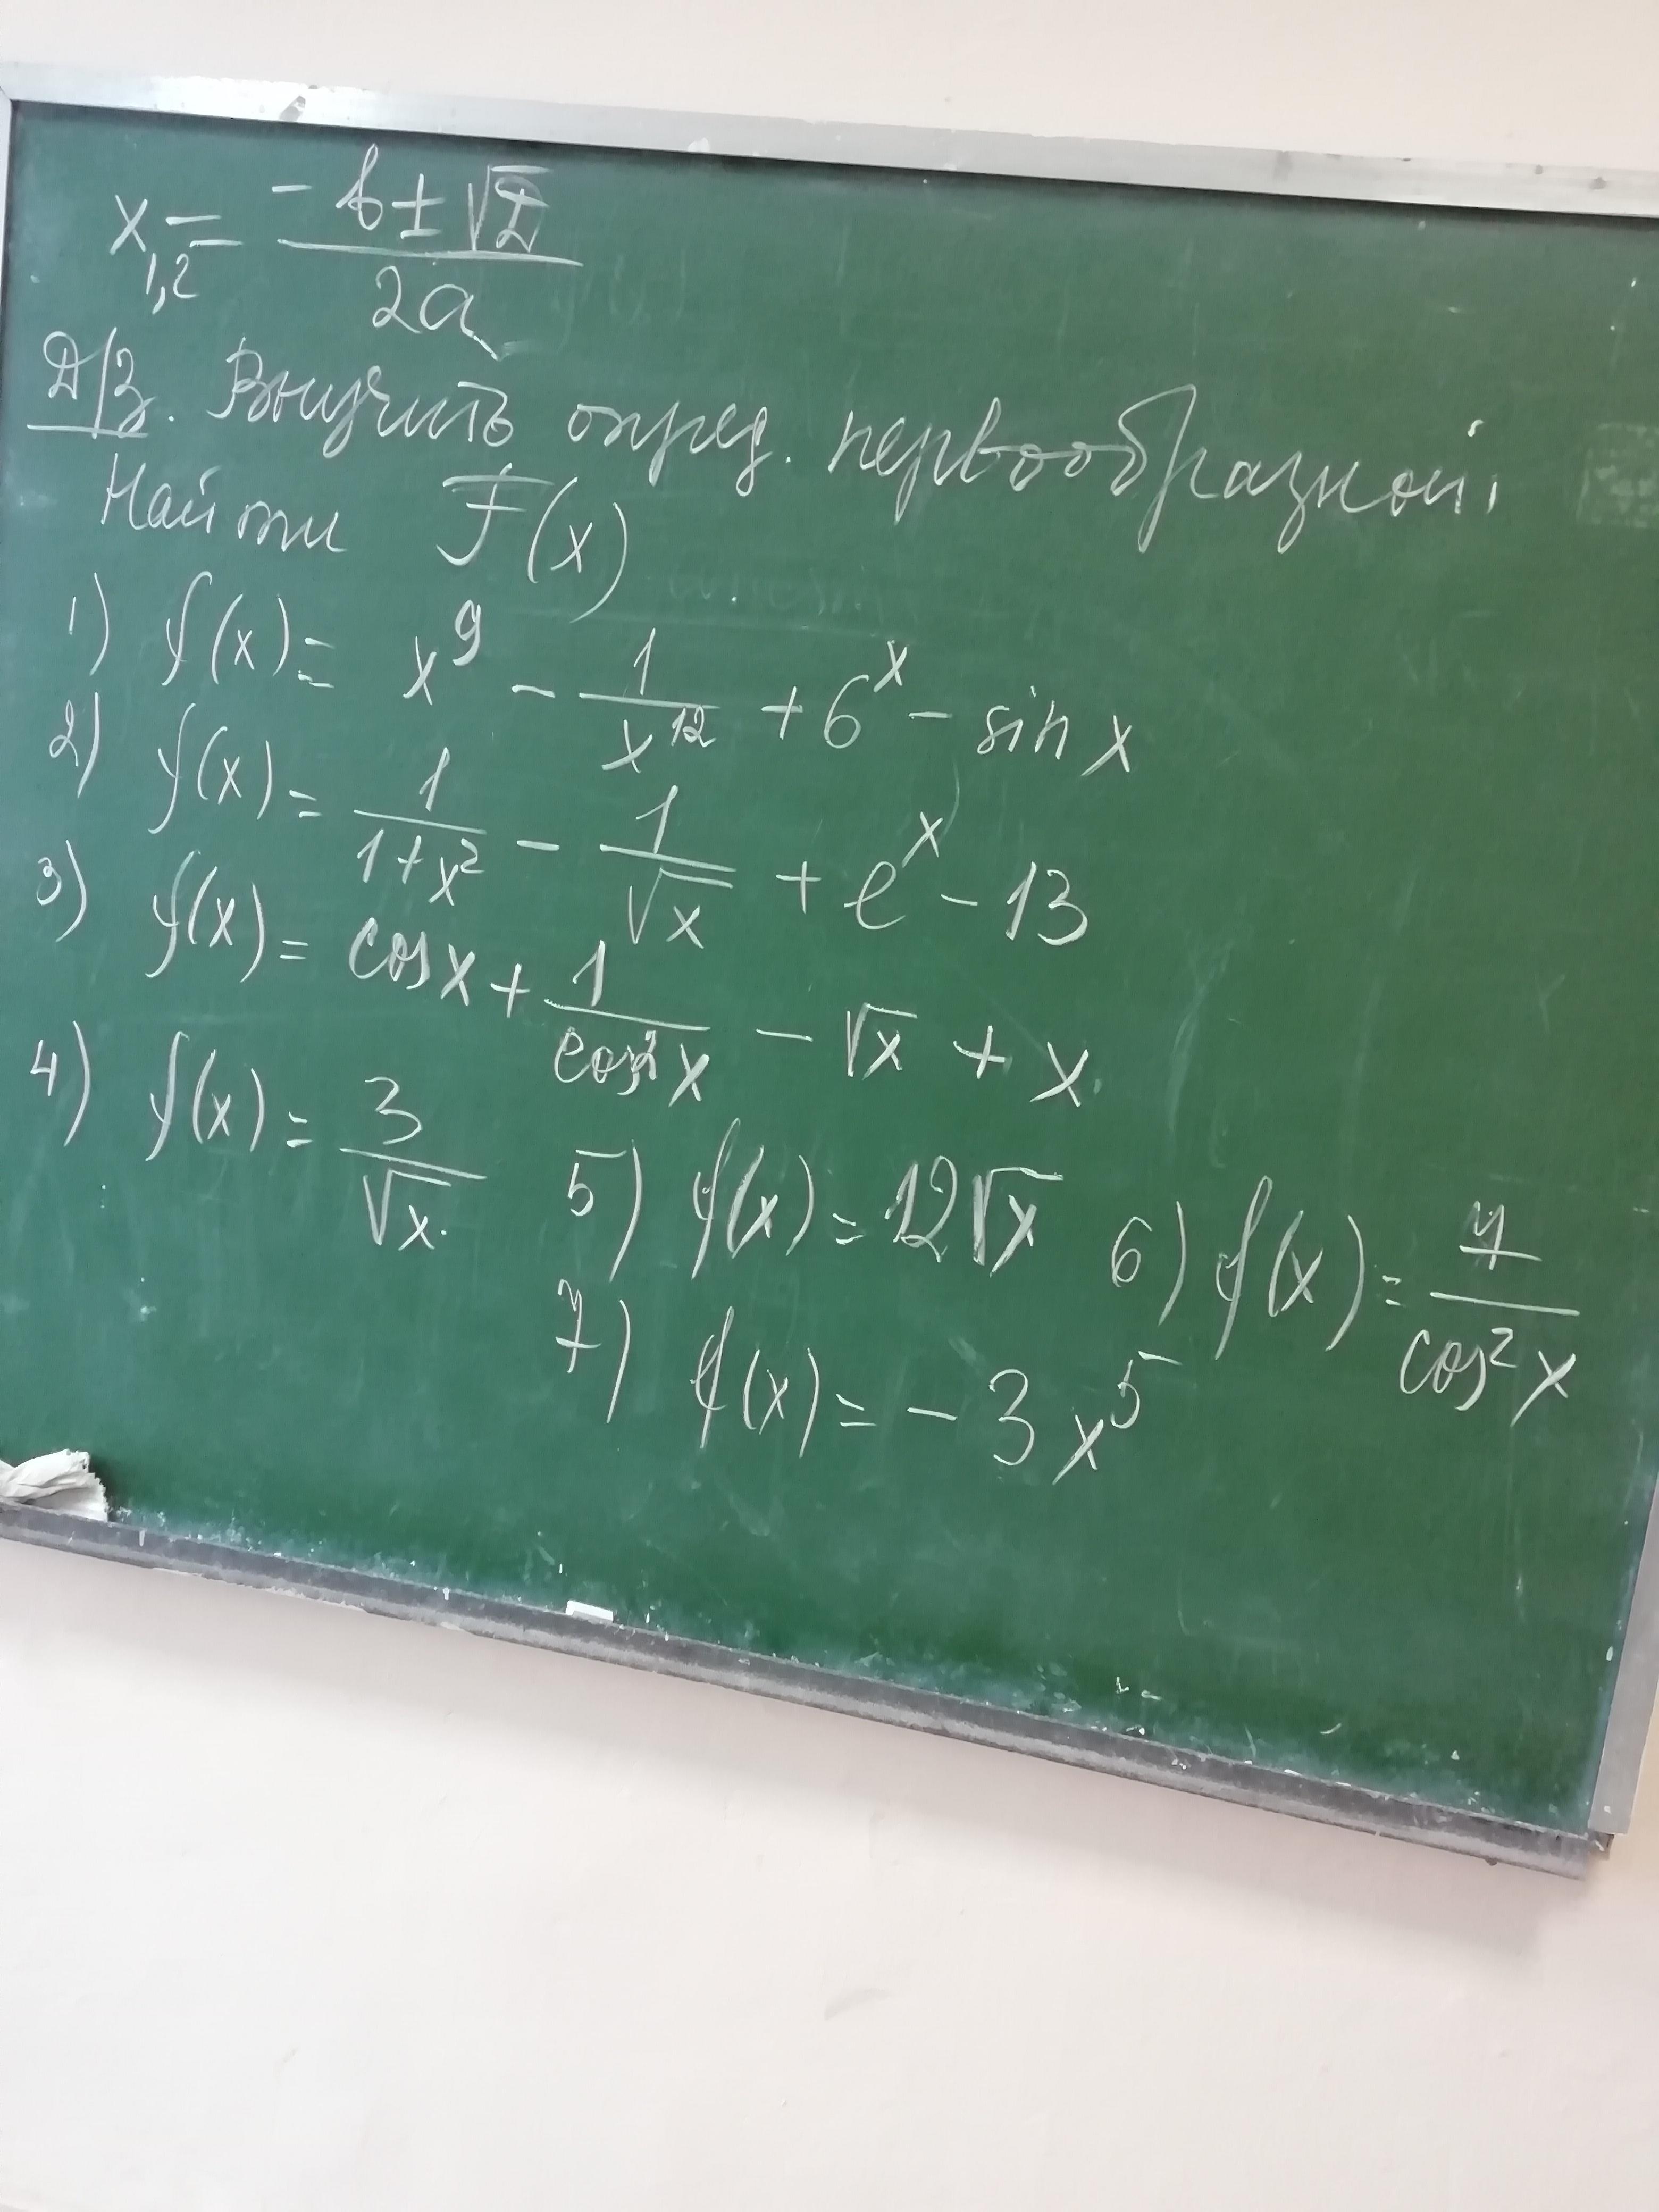 x₁,₂ = (-b ± √D) / 2a
Д/З. Выучить опред. первообразной.
Найти F(x)
1) f(x) = x⁹ - 1/x¹² + 6ˣ - sin x
2) f(x) = 1/(1+x²) - 1/√x + eˣ - 13
3) f(x) = cos x + 1/cos²x - √x + x.
4) f(x) = 3/√x. 5) f(x) = 12√x 6) f(x) = 7/cos²x
7) f(x) = -3x⁵